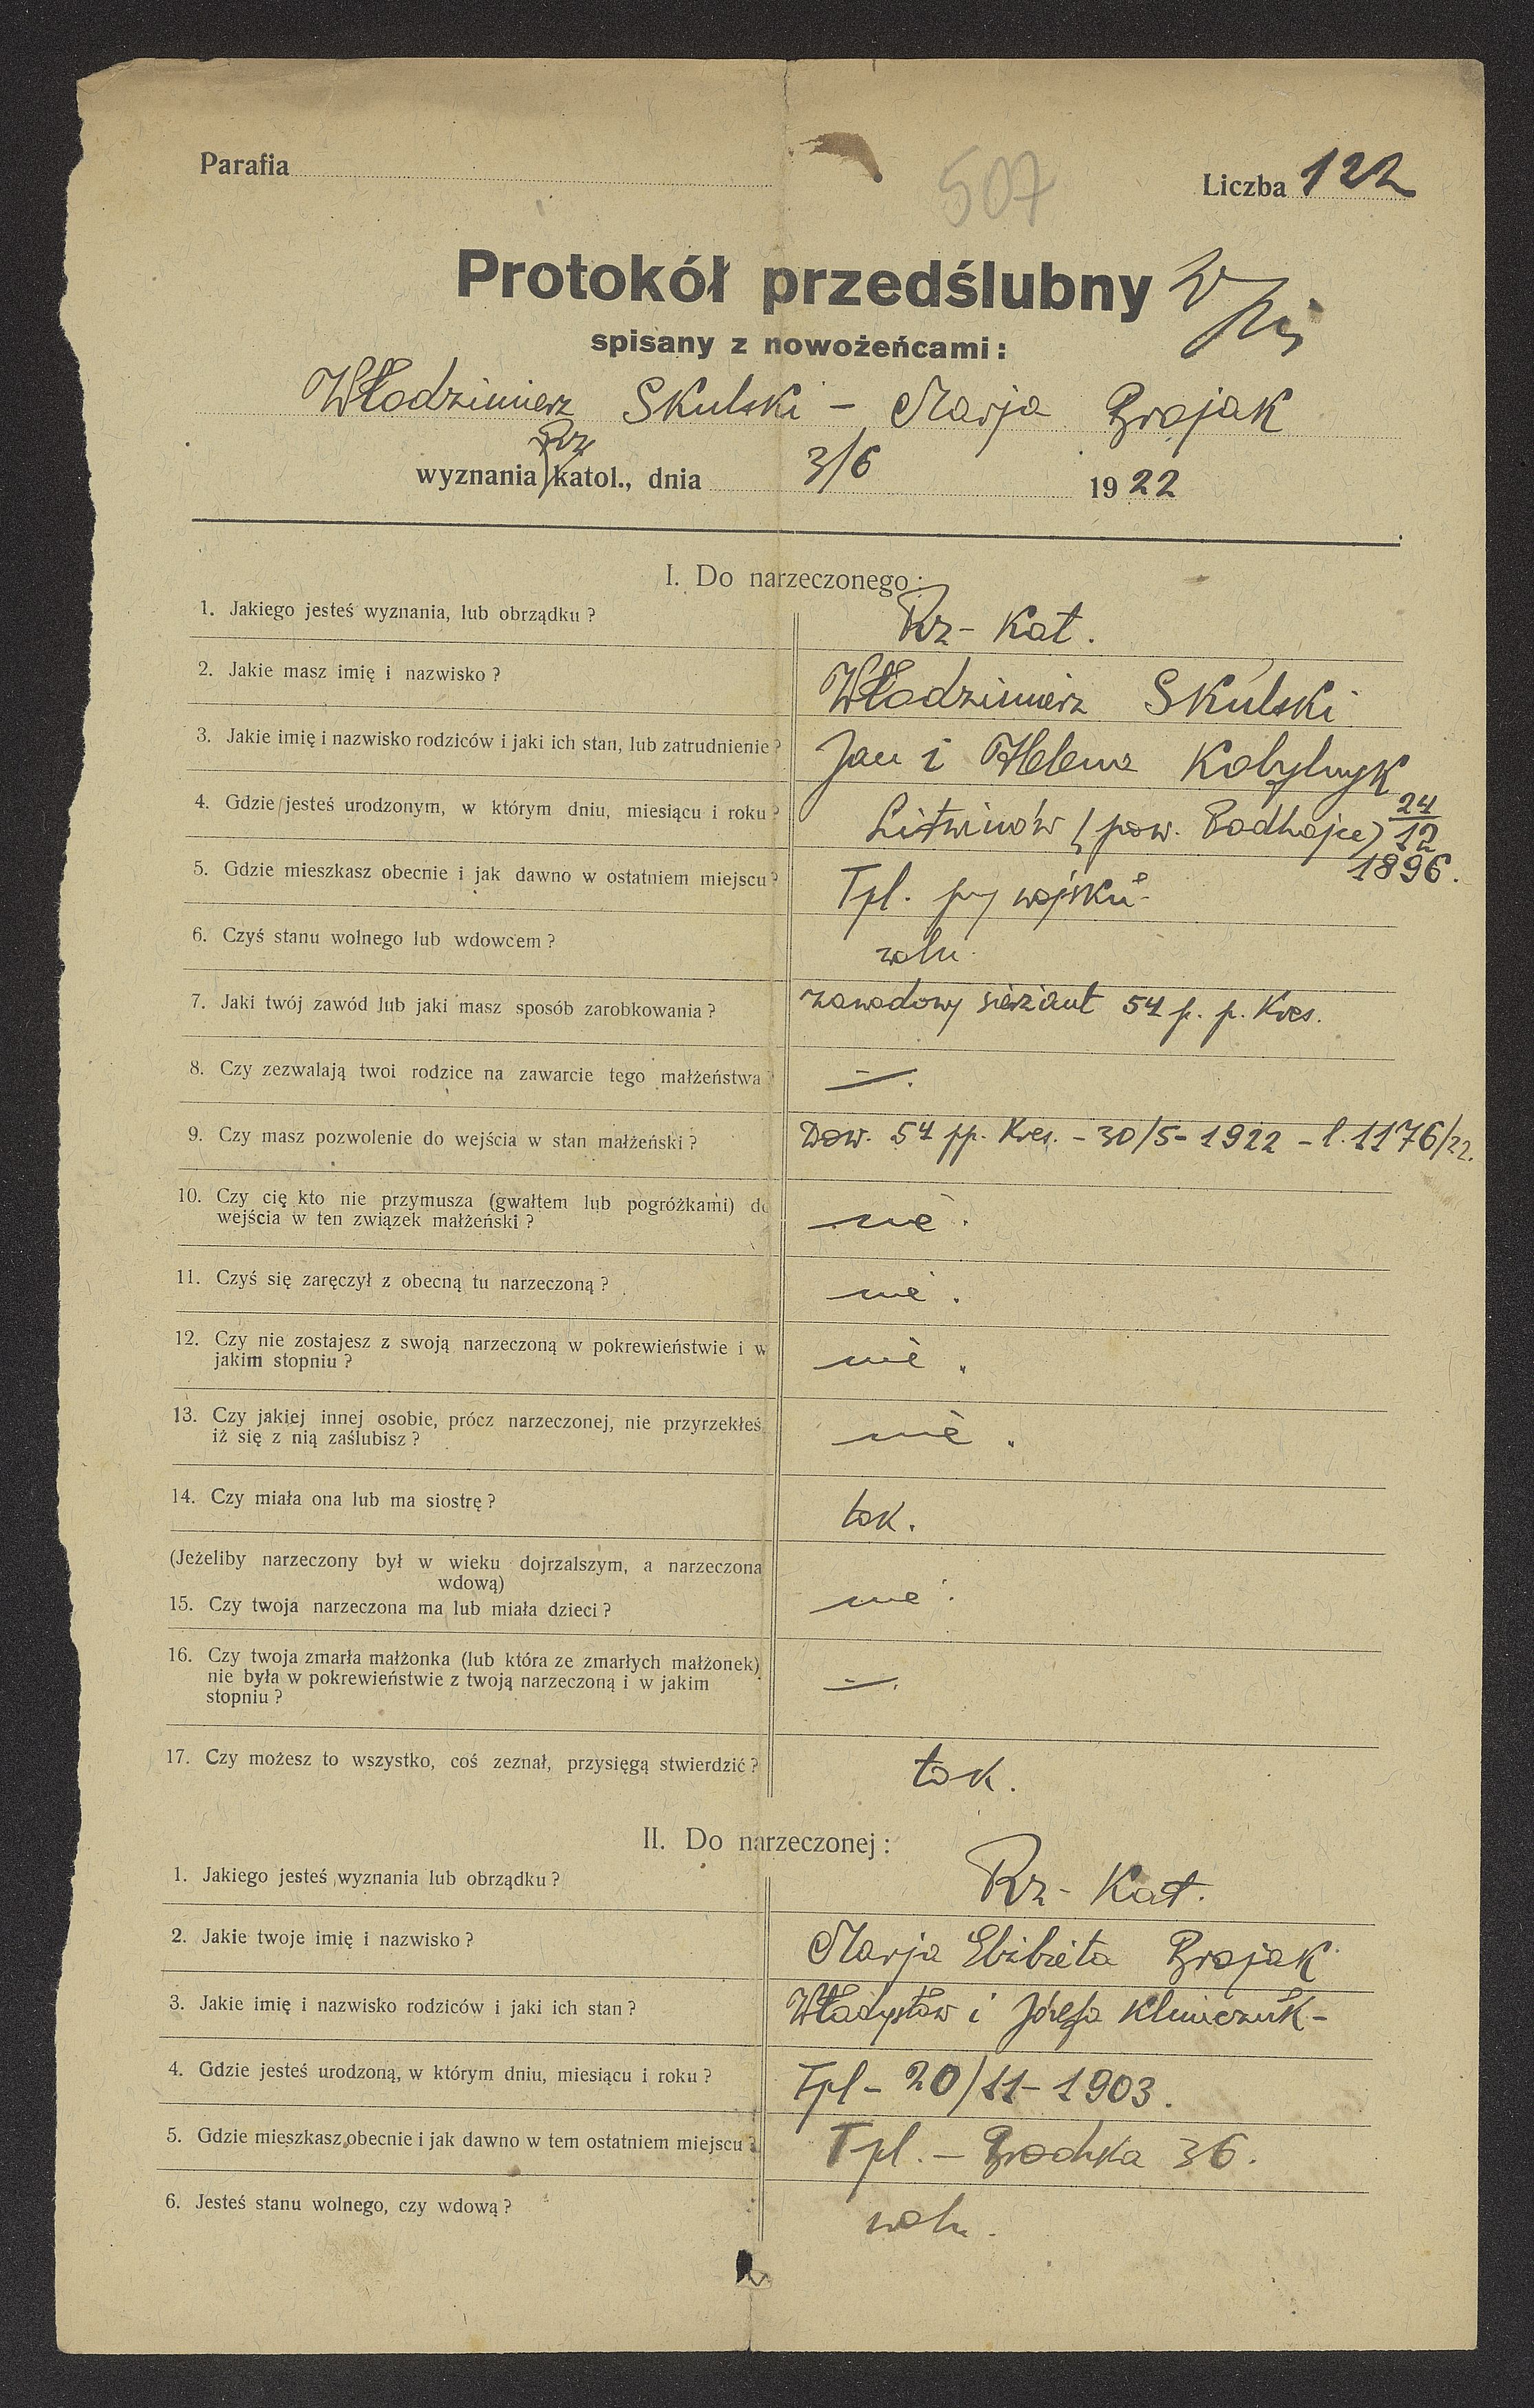 Parafia
507
Liczba 122
Protokół przedślubny
spisany z nowożeńcami:
Włodzimierz Skulski - Marja Brojak
Rz
wyznania katol., dnia 3/6 1922
I. Do narzeczonego:
1. Jakiego jesteś wyznania, lub obrządku? Rz-Kat.
2. Jakie masz imię i nazwisko? Włodzimierz Skulski
3. Jakie imię i nazwisko rodziców i jaki ich stan, lub zatrudnienie? Jan i Helena Kobylnyk
4. Gdzie jesteś urodzonym, w którym dniu, miesiącu i roku? Litwinów (pow. Podhajce) 24/12
1896.
5. Gdzie mieszkasz obecnie i jak dawno w ostatniem miejscu? Tpl. przy wojsku
6. Czyś stanu wolnego lub wdowcem? woln.
7. Jaki twój zawód lub jaki masz sposób zarobkowania? zawodowy sierżant 54 p. p. Kres.
8. Czy zezwalają twoi rodzice na zawarcie tego małżeństwa? —.
9. Czy masz pozwolenie do wejścia w stan małżeński? Dow. 54 pp. Kres. - 30/5 - 1922 - l. 1176/22.
10. Czy cię kto nie przymusza (gwałtem lub pogróżkami) do
wejścia w ten związek małżeński? nie.
11. Czyś się zaręczył z obecną tu narzeczoną? nie.
12. Czy nie zostajesz z swoją narzeczoną w pokrewieństwie i w
jakim stopniu? nie.
13. Czy jakiej innej osobie, prócz narzeczonej, nie przyrzekłeś,
iż się z nią zaślubisz? nie.
14. Czy miała ona lub ma siostrę? tak.
(Jeżeliby narzeczony był w wieku dojrzalszym, a narzeczona
wdową)
15. Czy twoja narzeczona ma lub miała dzieci? nie.
16. Czy twoja zmarła małżonka (lub która ze zmarłych małżonek)
nie była w pokrewieństwie z twoją narzeczoną i w jakim
stopniu? —.
17. Czy możesz to wszystko, coś zeznał, przysięgą stwierdzić? tak.
II. Do narzeczonej:
1. Jakiego jesteś wyznania lub obrządku? Rz-Kat.
2. Jakie twoje imię i nazwisko? Marja Elżbieta Brojak
3. Jakie imię i nazwisko rodziców i jaki ich stan? Władysław i Józefa Klimczuk-
4. Gdzie jesteś urodzoną, w którym dniu, miesiącu i roku? Tpl - 20/11 - 1903.
5. Gdzie mieszkasz obecnie i jak dawno w tem ostatniem miejscu? Tpl. - 36.
6. Jesteś stanu wolnego, czy wdową? woln.